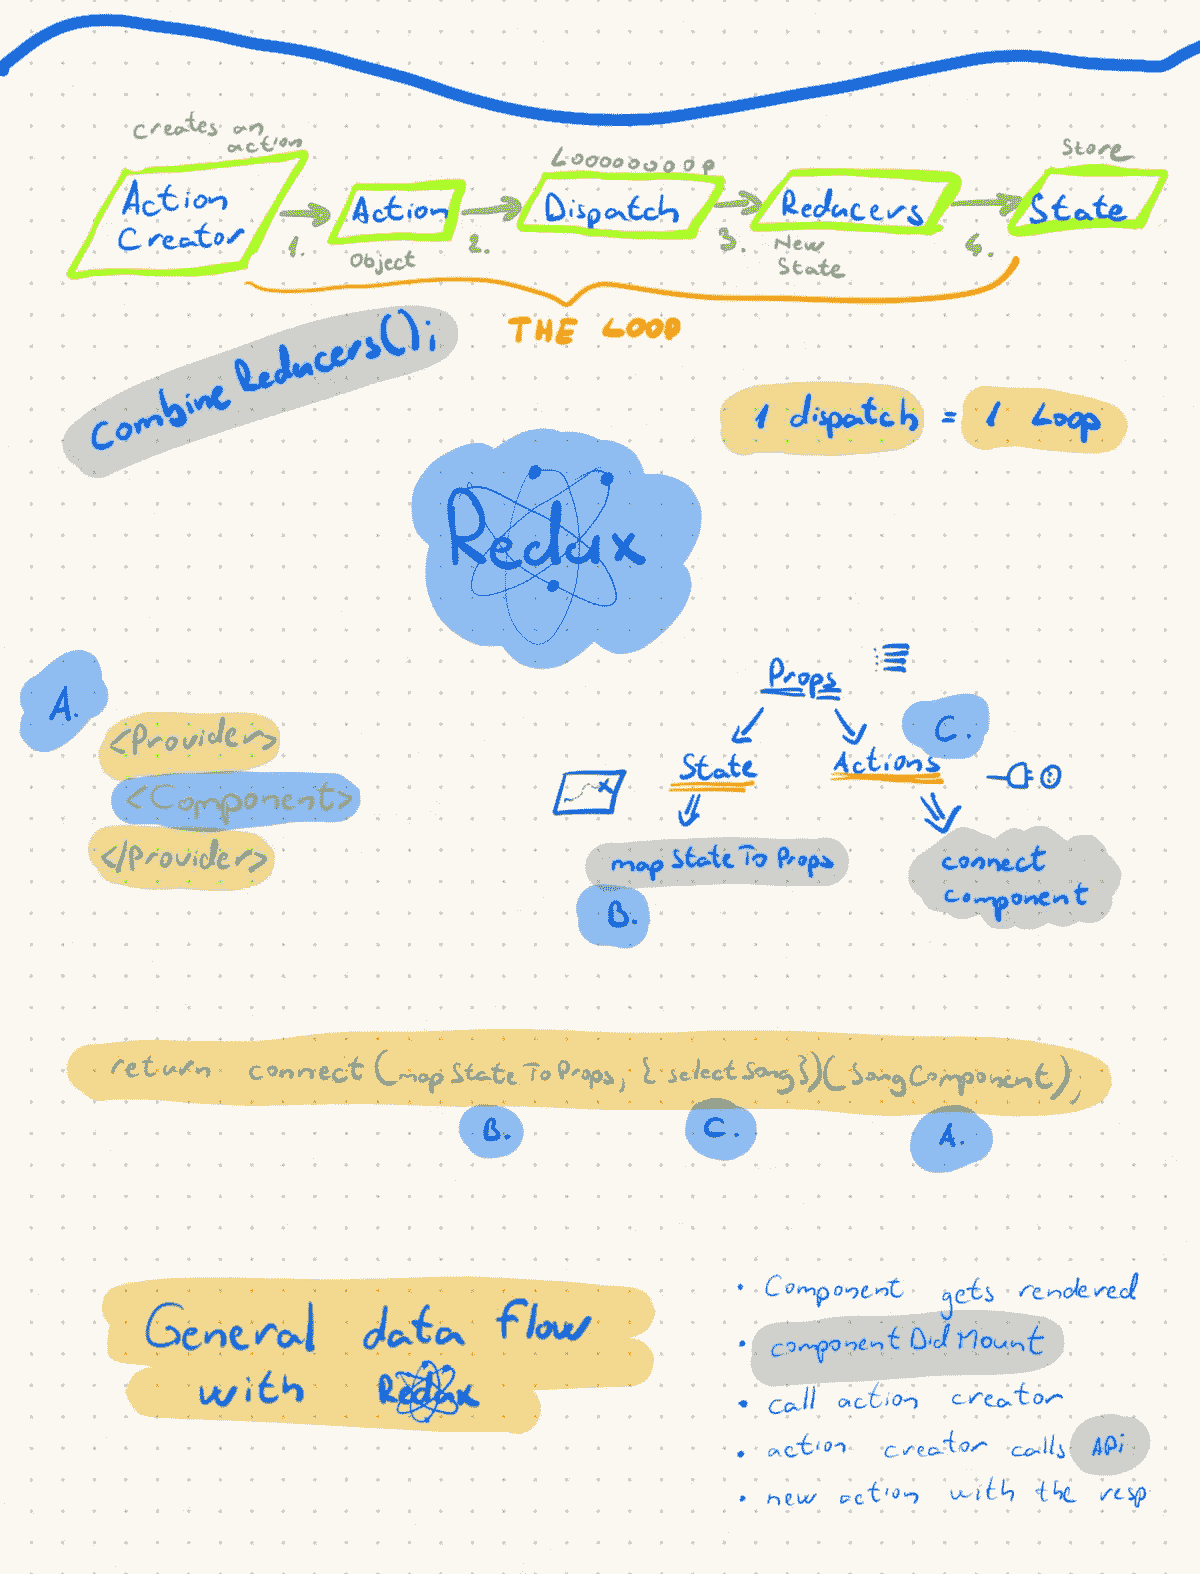 creates an
action
Action
Creator
1.
Action
Object
2.
Looooooooop
Dispatch
3.
Reducers
New
State
4.
Store
State
THE LOOP
CombineReducers();
1 dispatch = 1 Loop
Redux
A.
<Provider>
<Component>
</Provider>
Props
C.
State
Actions
mapStateToProps
B.
connect
component
return connect(mapStateToProps, {selectSong})(SongComponent);
B.
C.
A.
General data flow
with Redux
• Component gets rendered
• componentDidMount
• call action creator
• action creator calls APi
• new action with the resp